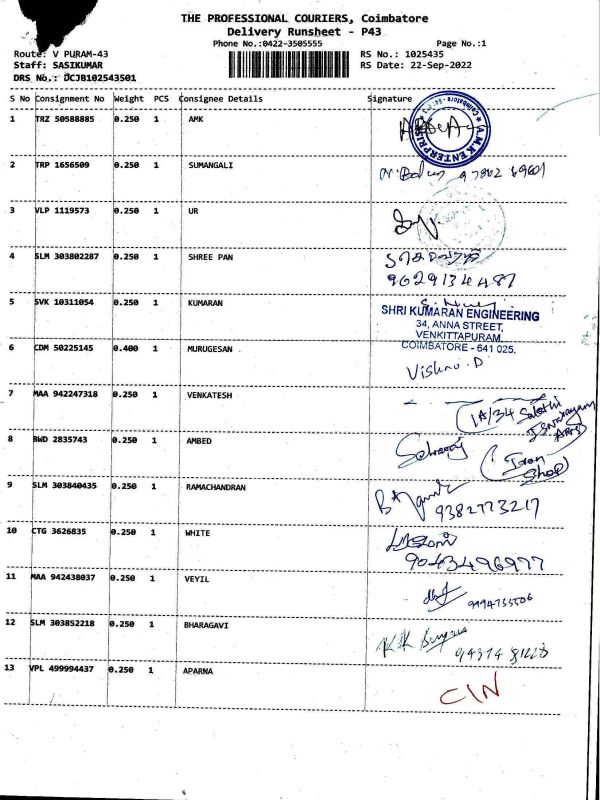 THE PROFESSIONAL COURIERS, Coimbatore
Delivery Runsheet - P43
Phone No.:0422-3505555 Page No.:1
Route: V PURAM-43 RS No.: 1025435
Staff: SASIKUMAR RS Date: 22-Sep-2022
DRS No.: DCJB102543501
S No Consignment No Weight PCS Consignee Details Signature
1 TRZ 50588885 0.250 1 AMK
A.M.K ENTERPRIS
2 TRP 1656509 0.250 1 SUMANGALI
3 VLP 1119573 0.250 1 UR
4 SLM 303802287 0.250 1 SHREE PAN
9629134487
5 SVK 10311054 0.250 1 KUMARAN
SHRI KUMARAN ENGINEERING
34, ANNA STREET,
VENKITTAPURAM,
COIMBATORE - 641 025.
6 CDM 50225145 0.400 1 MURUGESAN
Vishnu.D
7 MAA 942247318 0.250 1 VENKATESH
1A/34 Sakthi
8 BWD 2835743 0.250 1 AMBED
9 SLM 303840435 0.250 1 RAMACHANDRAN
9382773217
10 CTG 3626835 0.250 1 WHITE
9043496977
11 MAA 942438037 0.250 1 VEYIL
12 SLM 303852218 0.250 1 BHARAGAVI
13 VPL 499994437 0.250 1 APARNA
CIN